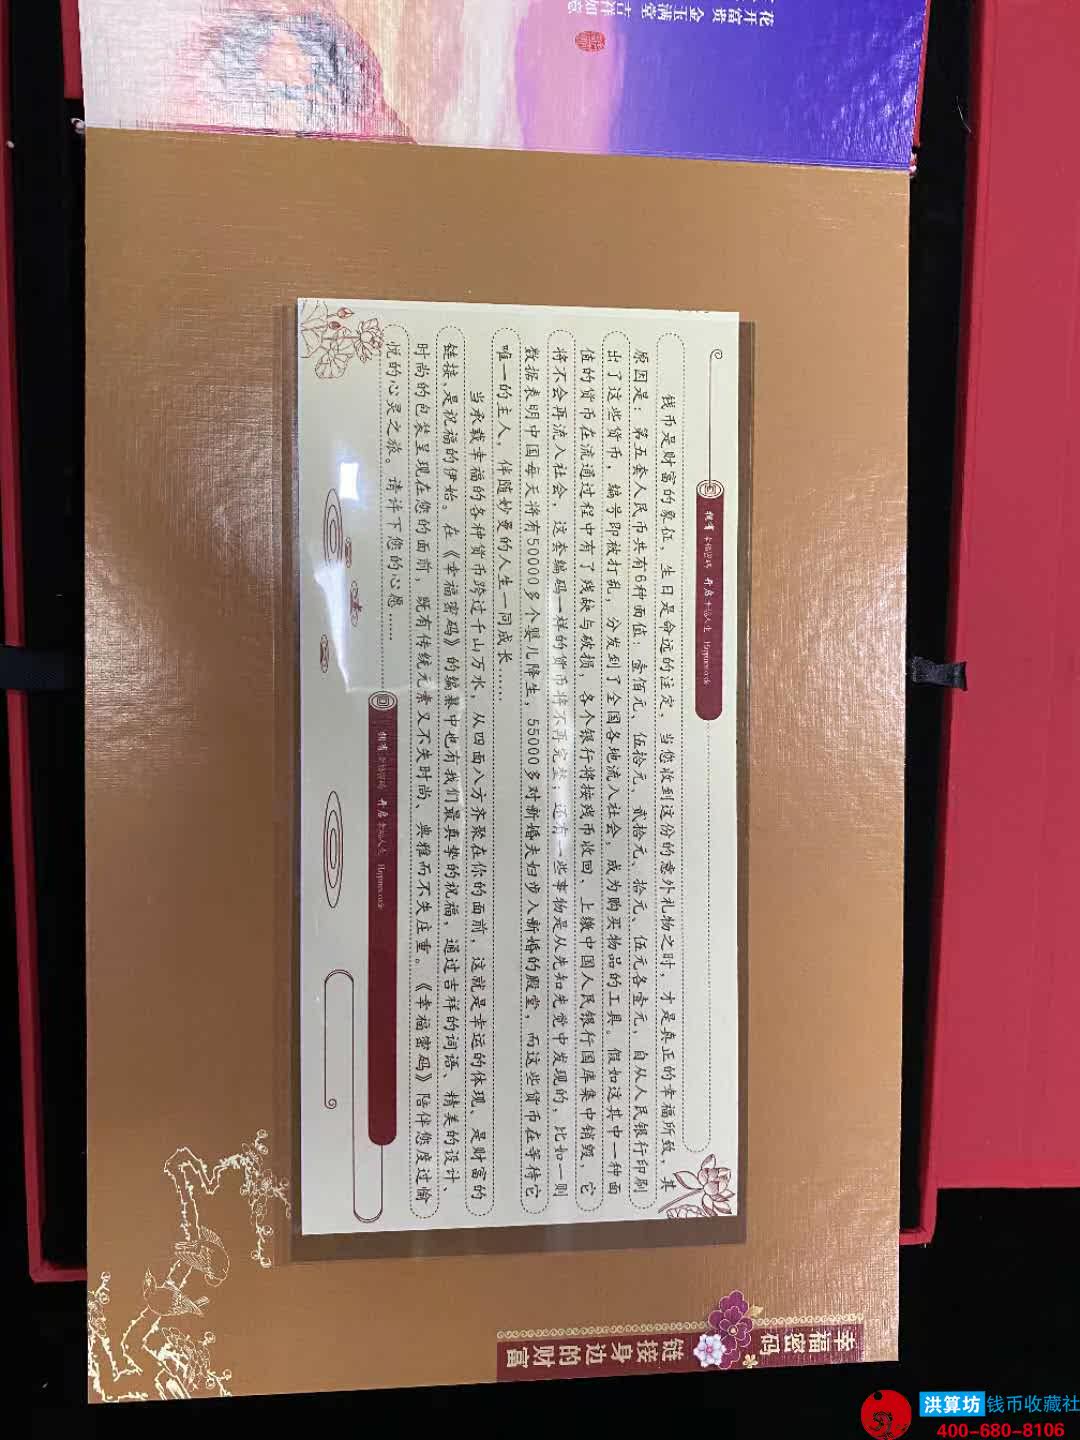 花开富贵
金玉满堂
吉祥如意
拥有 幸福密码 开启 幸运人生
钱币是财富的象征，生日是命运的注定，当您收到这份的意外礼物之时，才是真正的幸福所致，其
原因是：第五套人民币共有6种面值：壹佰元、伍拾元、贰拾元、拾元、伍元各壹元，自从人民银行印刷
出了这些货币，编号即被打乱，分发到了全国各地流入社会，成为购买物品的工具。假如这其中一种面
值的货币在流通过程中有了残缺与破损，各个银行将按残币收回、上缴中国人民银行国库集中销毁，它
将不会再流入社会，这套编码一样的货币将不再完整；还有一些事物是从先知先觉中发现的，比如一则
数据表明中国每天将有50000多个婴儿降生，55000多对新婚夫妇步入新婚的殿堂，而这些货币在等待它
唯一的主人，伴随妙曼的人生一同成长……
当承载幸福的各种货币跨过千山万水，从四面八方齐聚在你的面前，这就是幸运的体现、是财富的
链接、是祝福的伊始。在《幸福密码》的编纂中也有我们最真挚的祝福，通过吉祥的词语、精美的设计、
时尚的包装呈现在您的面前，既有传统元素又不失时尚、典雅而不失庄重。《幸福密码》陪伴您度过愉
悦的心灵之旅。请许下您的心愿……
拥有 幸福密码 开启 幸运人生
幸福密码
链接身边的财富
洪算坊 钱币收藏社
400-680-8106